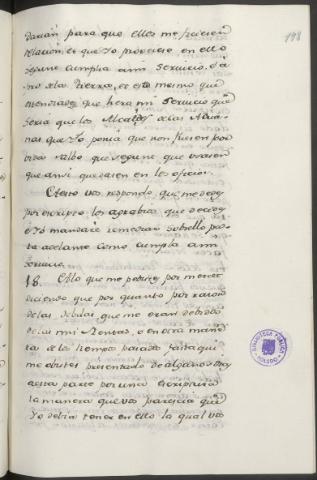 198
darian para que ellos me ficiesen
relacion, è que Yo proveiese en ello
segund cumplia à mi servicio, è à
pro de la tierra, è eso mesmo que
entendiades que hera mi servicio que
seria que los Alcaldes de las Adua-
nas que Yo ponia que non fuesen por
vida salvo que segund que usasen
que ansi quedasen en los oficios.
A esto vos respondo, que me dedes
por escripto los agrabios que decides
è Yo mandarè remediar sobrello pa-
ra adelante como cumpla à mi
servicio.
18. A lo que me pedistes por merced
diciendo que por quanto por razon
de las debdas, que me eran debidas
de las mis Rentas, è en otra mane-
ra de los tiempos pasados fasta qui
me obistes presentado de algunos dias
acà esta parte por una escriptura
la manera que vos parescia que
Yo debia tener en ello la qual vos
BIBLIOTECA PUBLICA
TOLEDO